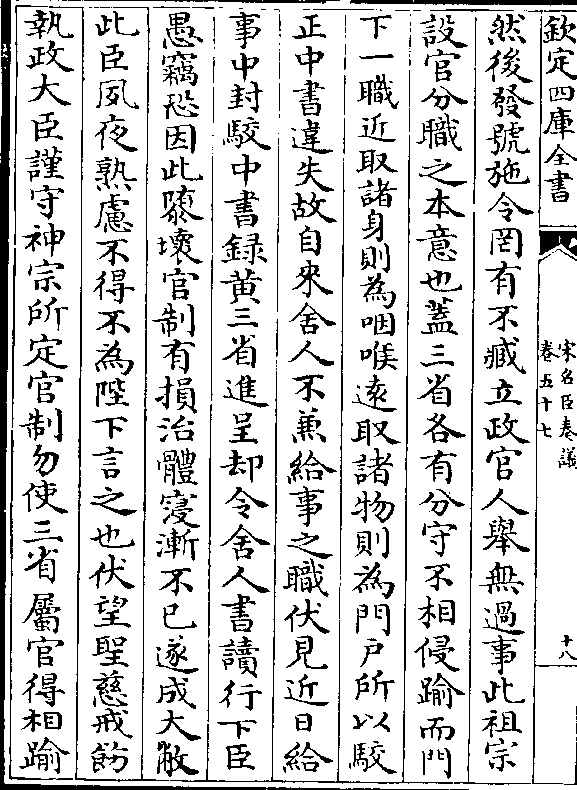 欽定四庫全書
宋名臣奏議
卷五十七
十八
然後發號施令罔有不臧立政官人舉無過事此祖宗
設官分職之本意也蓋三省各有分守不相侵踰而門
下一職近取諸身則為咽喉逺取諸物則為門戶所以駮
正中書違失故自來舍人不兼給事之職伏見近日給
事中封駮中書録黄三省進呈却令舍人書讀行下臣
愚竊恐因此隳壞官制有損治體寖漸不已遂成大敝
此臣夙夜熟慮不得不為陛下言之也伏望聖慈戒飭
執政大臣謹守神宗所定官制勿使三省屬官得相踰